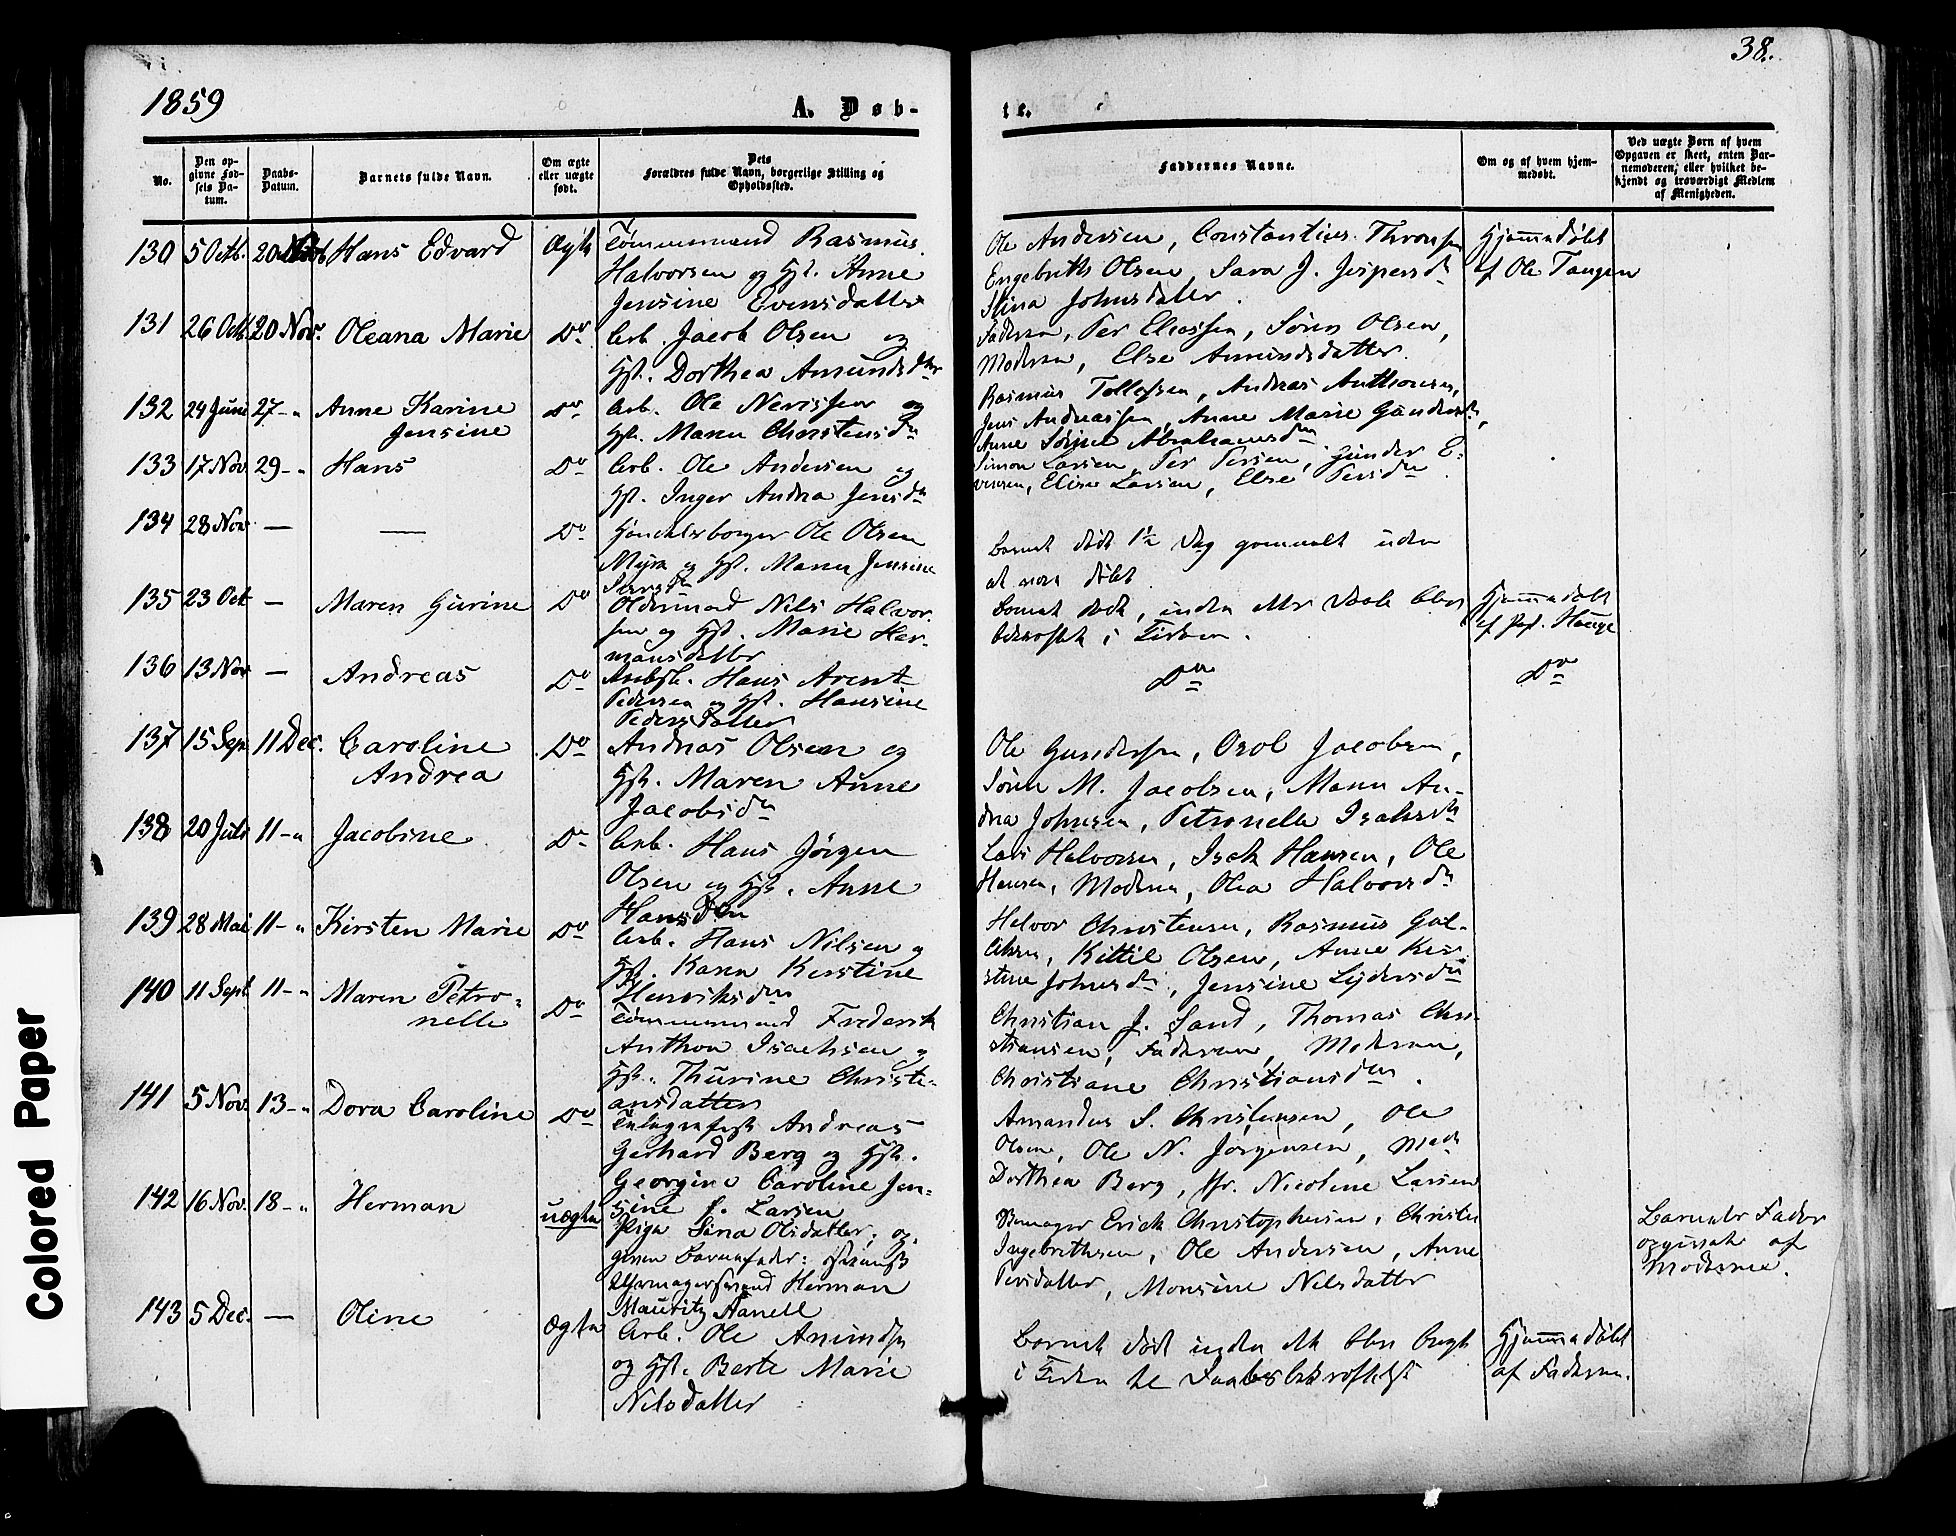 38.
1859
A. Døb-
te.
No.
Den op-
givne Fød-
sels Da-
tum.
Daabs-
Datum.
Barnets fulde Navn.
Om ægte
eller uægte
født.
Dets
Forældres fulde Navn, borgerlige Stilling og
Opholdssted.
Faddernes Navne.
Om og af hvem hjem-
medøbt.
Ved uægte Børn af hvem
Opgaven er skeet, enten Bar-
nemoderen, eller hvilket be-
kjendt og troværdigt Medlem
af Menigheden.
130 5 Octb. 20 Hans Edvard Ægte Tømmermand Rasmus
Halvorsen og Hst. Anne
Jensine Evensdatter
Ole Andersen, Constantius Thronsen
Engebrith Olsen, Sara J. Jespersdr
Stina Johnsdatter.
Hjemmedøbt
af Ole Tangen
131 26 Octb. 20 Nov. Oleana Marie Do Arb. Jacob Olsen og
Hst. Dorthea Amundsdtter
Faderen, Per Eliassen, Søren Olsen,
Moderen, Else Amundsdatter.
132 24 Juni 27 - " Anne Karine Do Arb. Ole Nerissen og
Jensine
Hst. Maren Christensdr
Rasmus Tollefsen, Andreas Anthonsen,
Jens Andreassen, Anne Marie Gundersdr,
Anne Abrahamsdr
133 17 Nov 29 - " Hans Do Arb. Ole Andersen og
Hst. Inger Andrea Jensdr
Simon Larsen, Per Persen, Gunder E-
vensen, Elise Larsen, Else Persdr
134 28 Nov — — Do Handelsborger Ole Olsen
Myra og Hst. Maren Jensine
Barnet død 1½ Dag gammelt uden
at være døbt
135 23 Oct — Maren Gurine Do Oldermand Nils Halvor-
sen og Hst. Marie Her-
mansdatter
Barnet døde, inden dets Daab blev
bekræftet i Kirken.
Hjemmedøbt
af Hauge
136 13 Nov — Andreas Do Hans Arent
Pedersen og Hst. Hansine
Pedersdatter
Do
Do
137 15 Sep. 11 Dec. Caroline Do Andreas Olsen og
Andrea
Hst. Maren Anne
Jacobsdr
Ole Gundersen, Jacobsen,
Søren M. Jacobsen, Maren An-
drea Johnsen, Petronelle Isaksdr
138 20 Juli 11 - " Jacobine Do Arb. Hans Jørgen
Olsen og Hst. Anne
Hansdtr
Lars Halvorsen, Isak Hansen, Ole
Hansen, Moderen, Olea Halvorsdr
139 28 Mai 11 - " Kirsten Marie Do Arb. Hans Nilsen og
Hst. Karen Kirstine
Henriksdr
Halvor Christensen, Rasmus Gul-
Kittil Olsen, Anne Kir-
stine Johnsdr, Jensine Lydersdr
140 11 Sept. 11 - " Maren Petro- Do Tømmermand Frederik
nelle
Anthon Isachsen og
Hst. Thurine Christi-
ansdatter
Christian J. Sand, Thomas Chri-
stiansen, Faderen, Moderen,
Christiane Christiansdr.
141 5 Nov. 13 - " Dora Caroline Do Telegrafist Andreas
Gerhard Berg og Hst.
Georgine Caroline Jen-
sine f. Larsen
Amandus S. Christensen, Ole
Olsen, Ole N. Jørgensen, Mad.
Dorthea Berg, Jfr. Nicoline Larsen
142 16 Nov. 18 - " Herman uægte Pige Lina Olsdatter; op-
given Barnefader:
Uhrmagersvend Herman
Mauritz Aanell
Erick Christophersen, Christen
Ingebrithsen, Ole Andersen, Anne
Persdatter, Monsine Nilsdatter
Barnets Fader
opgivet af
Moderen.
143 5 Dec. — Oline Ægte Arb. Ole Amundsen
og Hst. Berte Marie
Nilsdatter
Barnet død inden det blev bragt
i Kirken til Daabsbekræftelse
Hjemmedøbt
af Faderen.
Colored Paper